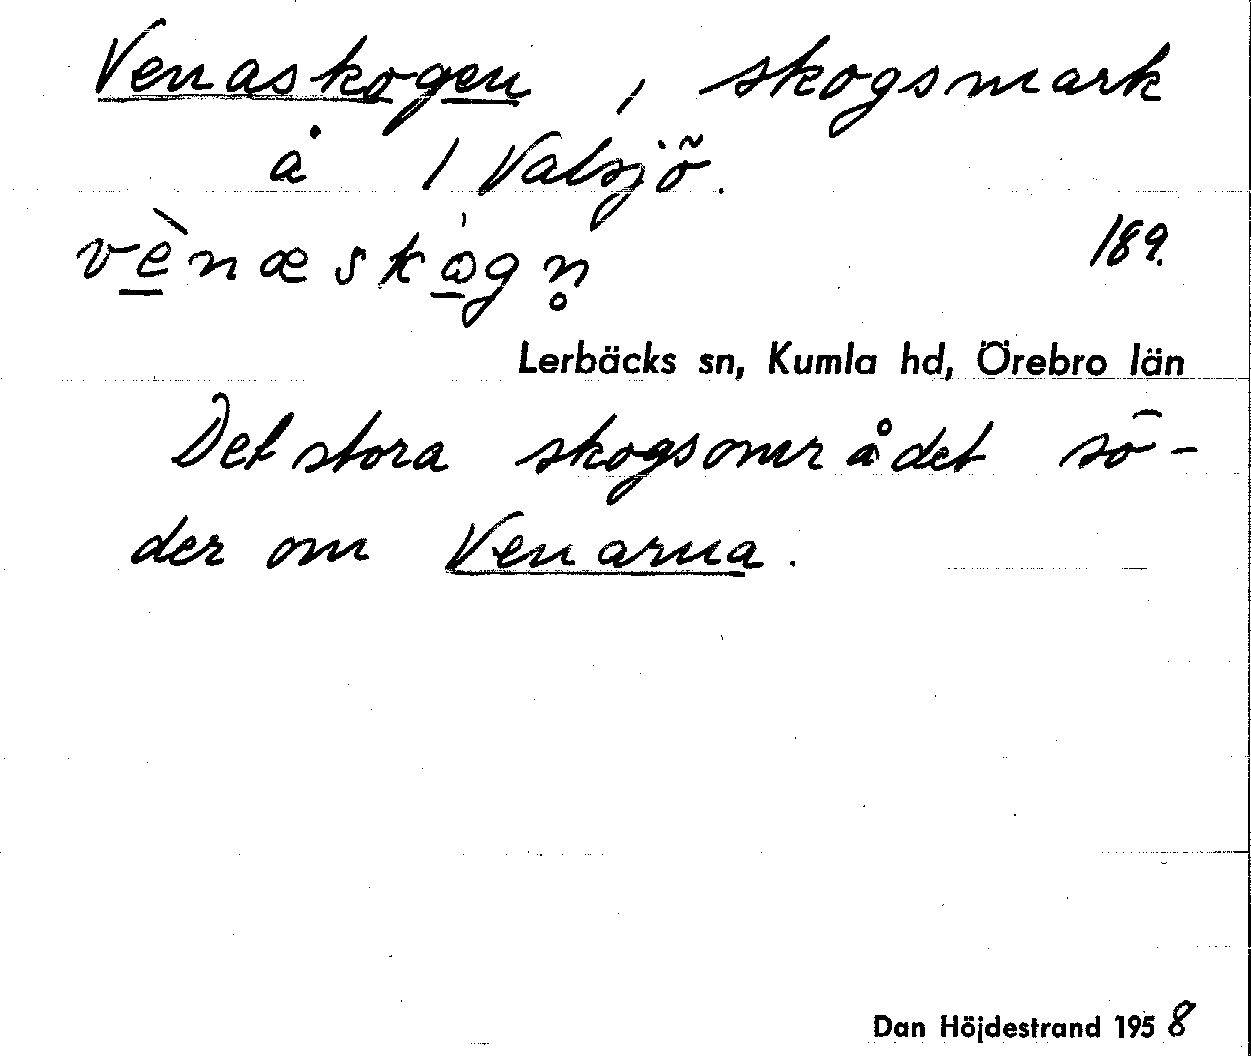 Venaskogen, skogsmark
å 1 Valsjö.
vènæskògn̥
189.
Lerbäcks sn, Kumla hd, Örebro län
Det stora skogsområdet sö-
der om Venarna.
Dan Höjdestrand 1958